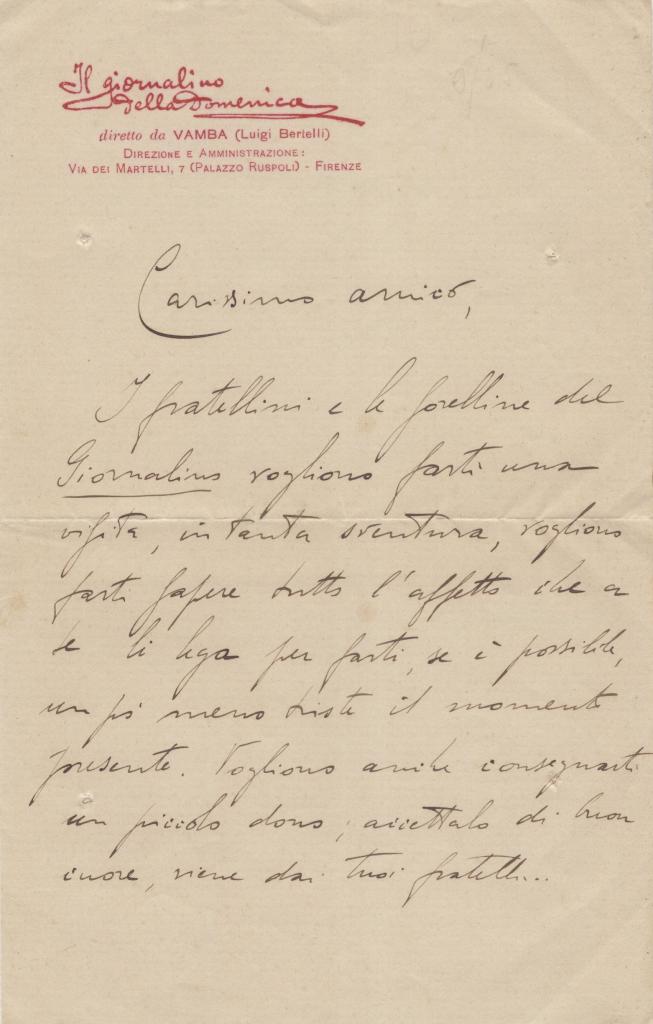 Il giornalino
della Domenica
diretto da VAMBA (Luigi Bertelli)
DIREZIONE E AMMINISTRAZIONE:
VIA DEI MARTELLI, 7 (PALAZZO RUSPOLI) - FIRENZE
Carissimo amico,
I fratellini e le sorelline del
Giornalino vogliono farti una
visita, in tanta sventura, vogliono
farti sapere tutto l'affetto che a
te li lega per farti, se è possibile,
un pò meno triste il momento
presente. Vogliono anche consegnarti
un piccolo dono; accettalo di buon
cuore, viene dai tuoi fratelli...